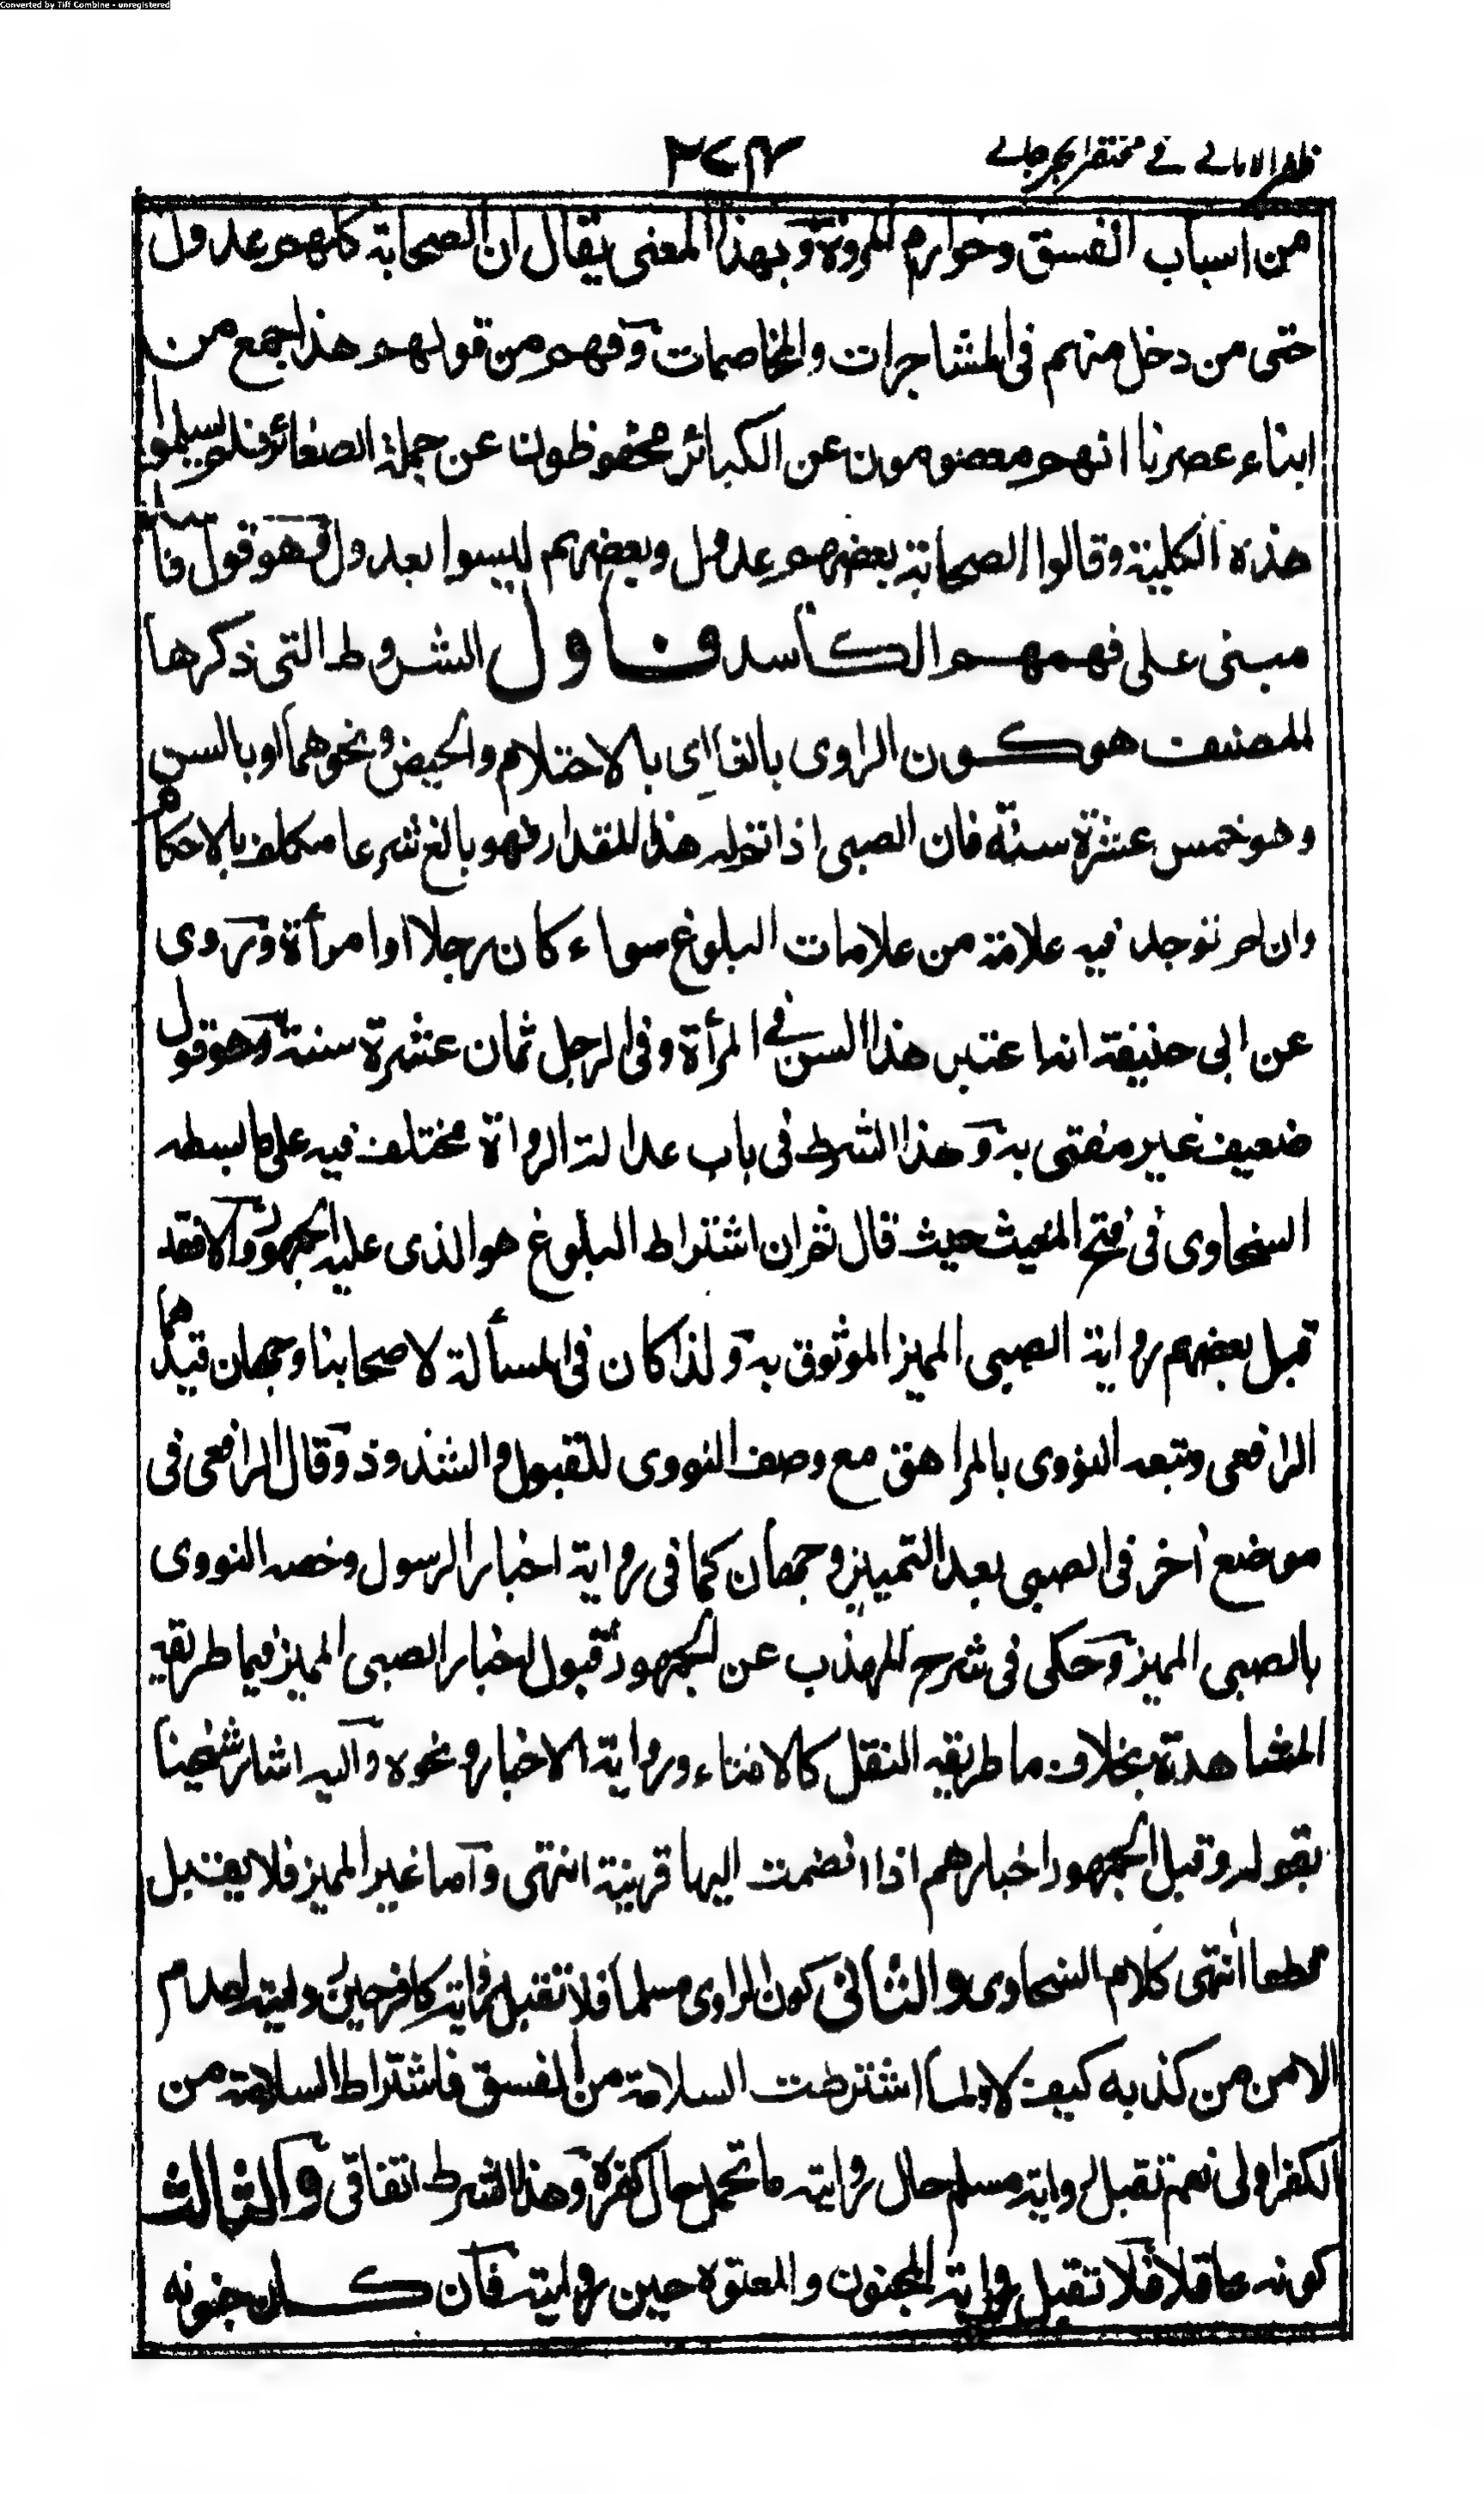 Converted by Tiff Combine - unregistered
ظفر الامانے فے مختصر الجرجانے
٢٧٤
من اسباب الفسق وخوارم المروة وبهذا المعنى يقال ان الصحابة كلهم عدول
حتى من دخل منهم فى المشاجرات والمخاصمات وفهم من قولهم هذا جمع من
ابناء عصرنا انهم معصومون عن الكبائر محفوظون عن جملة الصغائر فلم يسلموا
هذه الكلية وقالوا الصحابة بعضهم عدول وبعضهم ليسوا بعدول وهو قول فاسد
مبنى على فهمهم الكاسد فاول الشروط التى ذكرها
المصنف هو كون الراوى بالغا اى بالاحتلام والحيض ونحوهما او بالسن
وهو خمس عشرة سنة فان الصبى اذا تم له هذا المقدار فهو بالغ شرعا مكلف بالاحكام
وان لم توجد فيه علامة من علامات البلوغ سواء كان رجلا او امرأة وروى
عن ابى حنيفة انه اعتبر هذا السن فے المرأة وفى الرجل ثمان عشرة سنة وهو قول
ضعيف غير مفتى به وهذا الشرط فى باب عدالة الرواة مختلف فيه على ما بسطه
السخاوى فى فتح المغيث حيث قال ثم ان اشتراط البلوغ هو الذى عليه الجمهور والا فقد
قبل بعضهم رواية الصبى المميز الموثوق به ولذا كان فى المسألة لاصحابنا وجهان قيدهما
الرافعى وتبعه النووى بالمراهق مع وصف النووى للقبول والشذوذ وقال الرافعى فى
موضع آخر فى الصبى بعد التمييز وجهان كما فى رواية اخبار الرسول وخصه النووى
بالصبى المميز وحكى فى شرح المهذب عن الجمهور قبول اخبار الصبى المميز فيما طريقه
المشاهدة بخلاف ما طريقه النقل كالافتاء ورواية الاخبار ونحوه واليه اشار شيخنا
بقوله وقبل الجمهور اخبارهم اذا انضمت اليها قرينة انتهى واما غير المميز فلا يقبل
قطعا انتهى كلام السخاوى والثانى كون الراوى مسلما فلا تقبل رواية كافر حين روايته لعدم
الامن من كذبه كيف لا ولما اشترطت السلامة من الفسق فاشتراط السلامة من
الكفر اولى نعم تقبل رواية مسلم حال روايته ما تحمل حال كفره وهذا الشرط اتفاقى والثالث
كونه عاقلا فلا تقبل رواية المجنون والمعتوه حين روايته فان كان جنونه